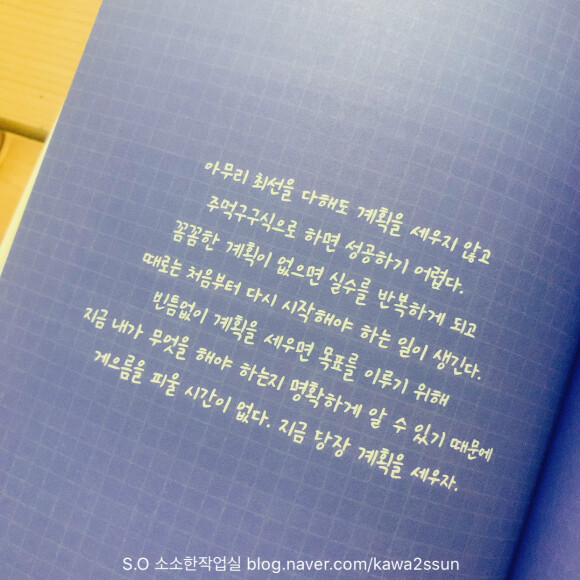 아무리 최선을 다해도 계획을 세우지 않고
주먹구구식으로 하면 성공하기 어렵다.
꼼꼼한 계획이 없으면 실수를 반복하게 되고
때로는 처음부터 다시 시작해야 하는 일이 생긴다.
빈틈없이 계획을 세우면 목표를 이루기 위해
지금 내가 무엇을 해야 하는지 명확하게 알 수 있기 때문에
게으름을 피울 시간이 없다. 지금 당장 계획을 세우자.
S.O 소소한작업실 blog.naver.com/kawa2ssun